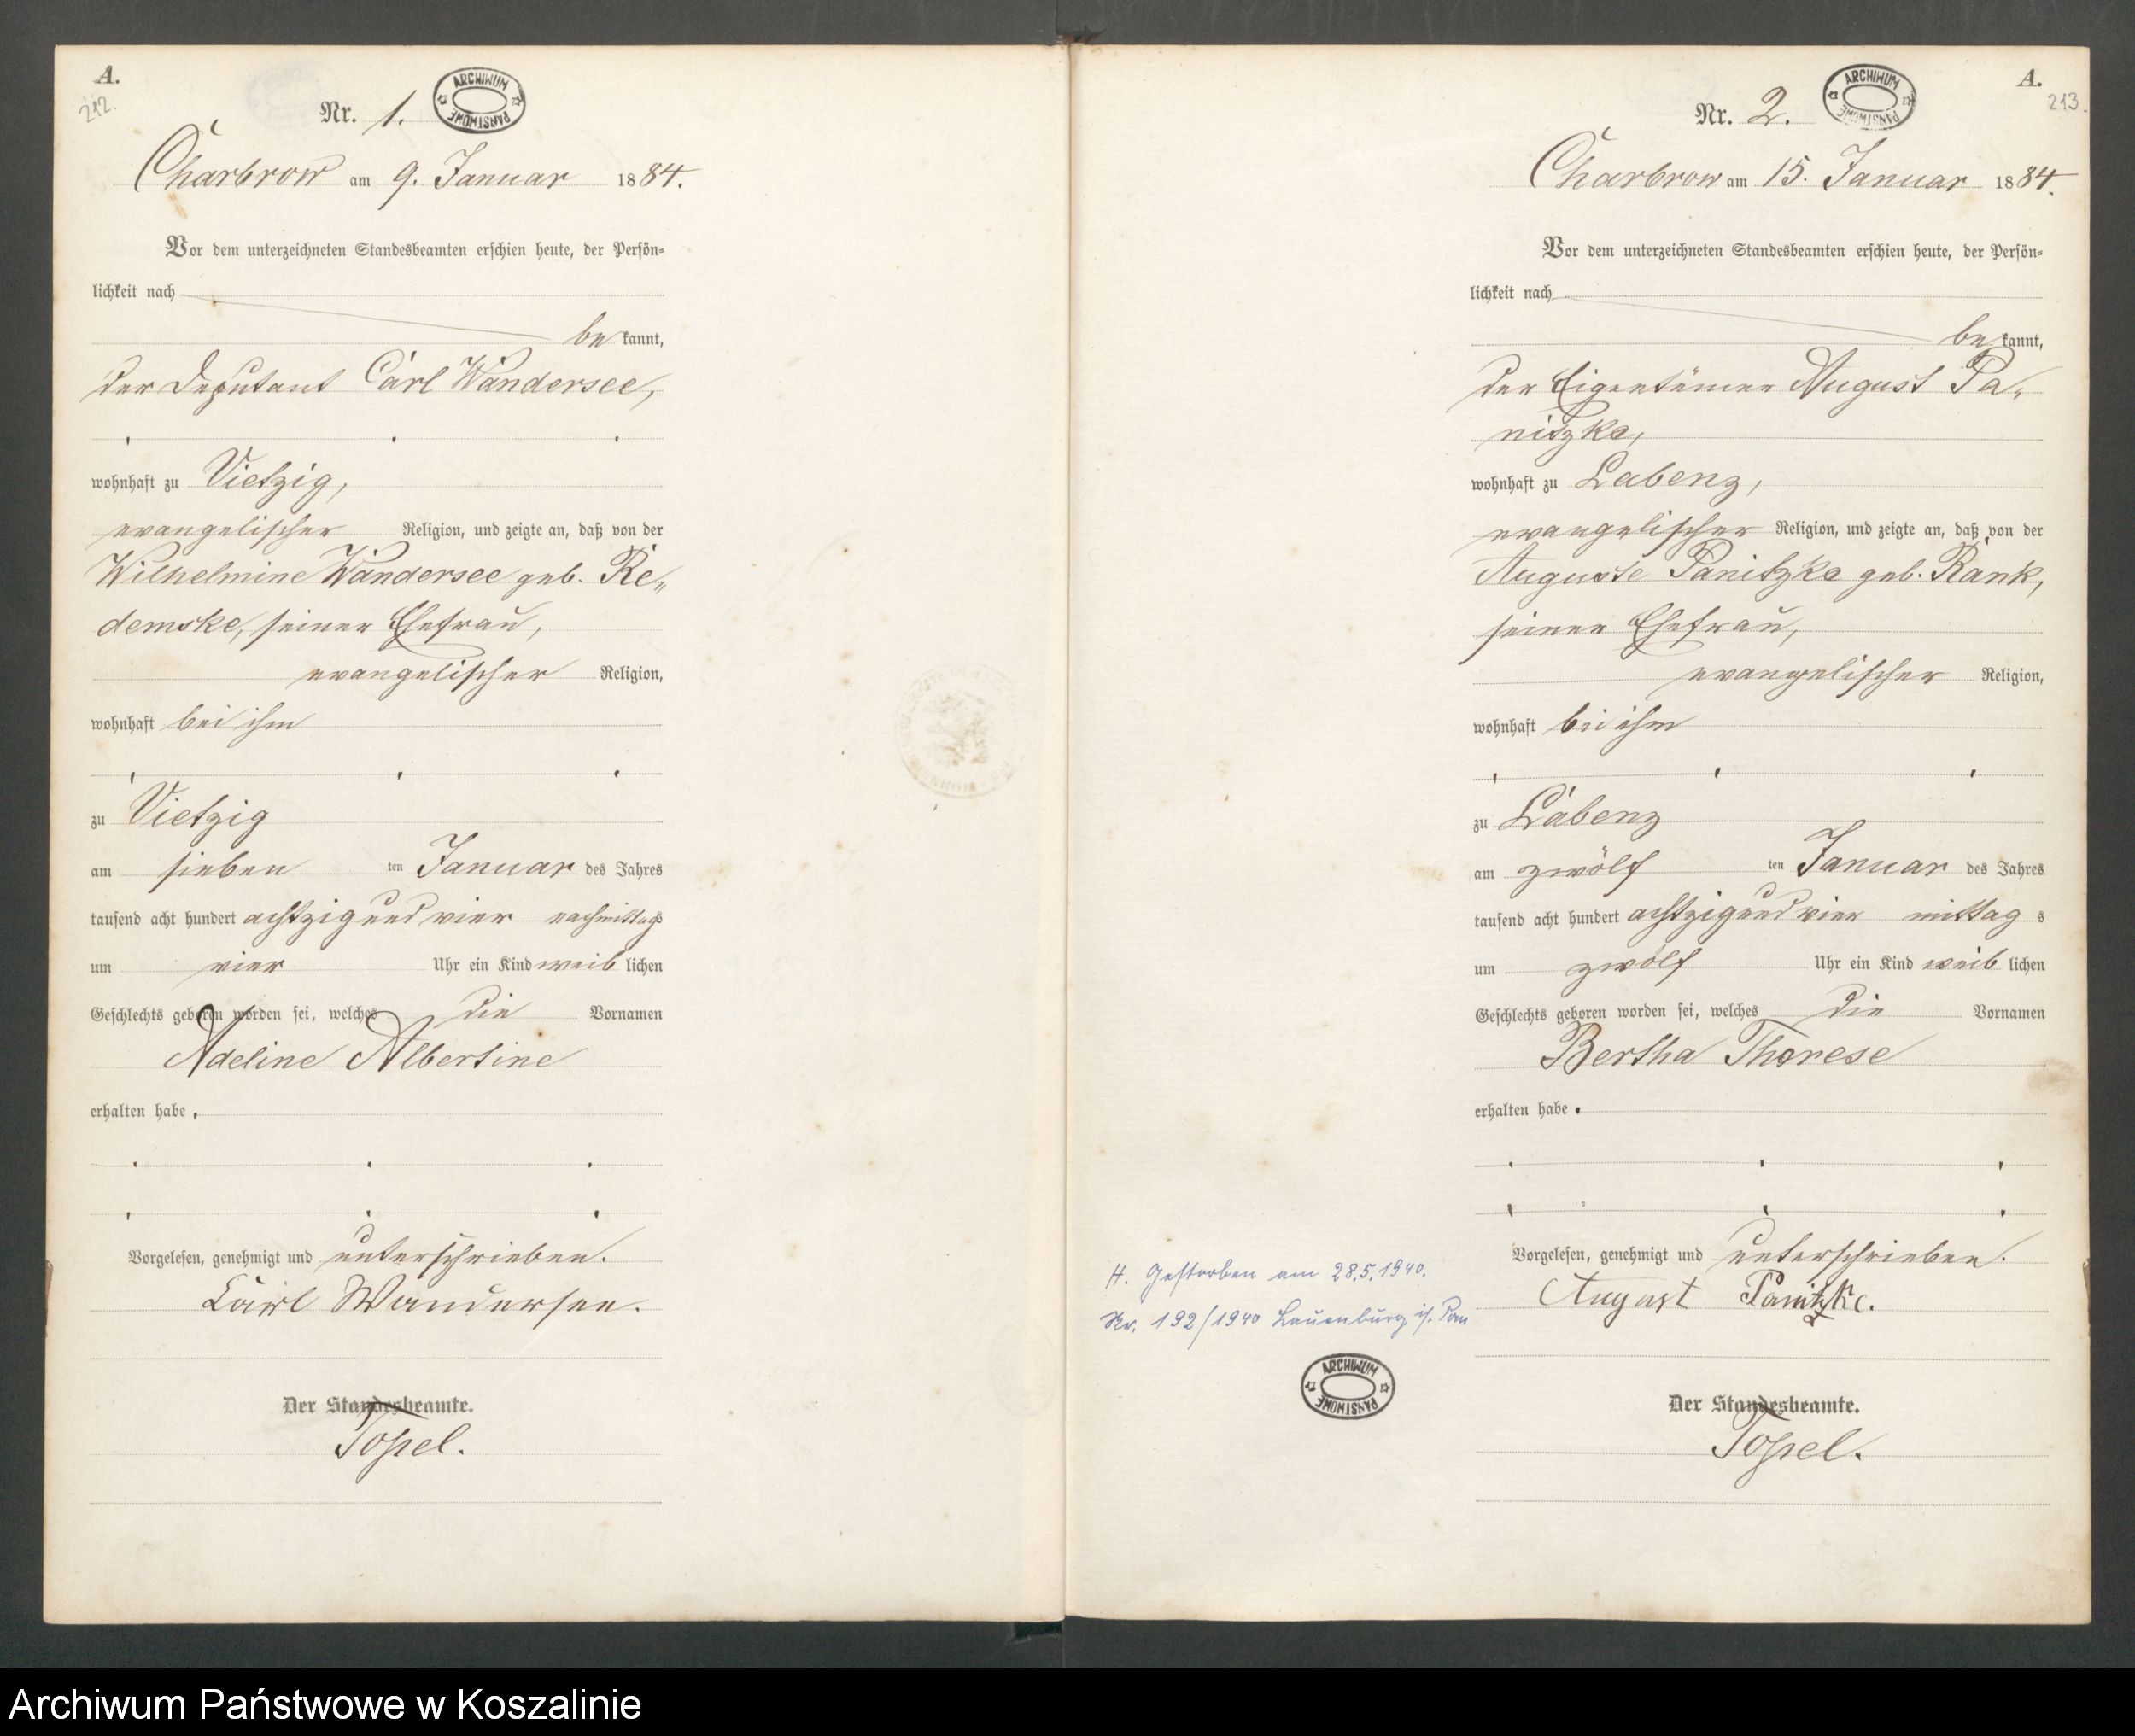 A.
212.
Nr. 1.
ARCHIWUM PAŃSTWOWE
Charbrow am 9. Januar 1884.
Vor dem unterzeichneten Standesbeamten erschien heute, der Persön-
lichkeit nach
be kannt,
der Deputant Carl Wandersee,
wohnhaft zu Vietzig,
evangelischer Religion, und zeigte an, daß von der
Wilhelmine Wandersee geb. Re-
demske, seiner Ehefrau,
evangelischer Religion,
wohnhaft bei ihm
zu Vietzig
am sieben ten Januar des Jahres
tausend acht hundert achtzig und vier nachmittags
um vier Uhr ein Kind weib lichen
Geschlechts geboren worden sei, welches die Vornamen
Adeline Albertine
erhalten habe.
Vorgelesen, genehmigt und unterschrieben.
Carl Wandersee.
Der Standesbeamte.
Topel.
A.
213.
Nr. 2.
ARCHIWUM PAŃSTWOWE
Charbrow am 15. Januar 1884.
Vor dem unterzeichneten Standesbeamten erschien heute, der Persön-
lichkeit nach
be kannt,
der Eigentümer August Pa-
nitzke,
wohnhaft zu Labenz,
evangelischer Religion, und zeigte an, daß von der
Auguste Panitzke geb. Rank,
seiner Ehefrau,
evangelischer Religion,
wohnhaft bei ihm
zu Labenz
am zwölf ten Januar des Jahres
tausend acht hundert achtzig und vier mittag s
um zwölf Uhr ein Kind weib lichen
Geschlechts geboren worden sei, welches die Vornamen
Bertha Therese
erhalten habe.
Vorgelesen, genehmigt und unterschrieben.
August Panitzke.
Der Standesbeamte.
Topel.
H. Gestorben am 28.5.1940.
Nr. 192/1940 Lauenburg i/. Pom
ARCHIWUM PAŃSTWOWE
Archiwum Państwowe w Koszalinie